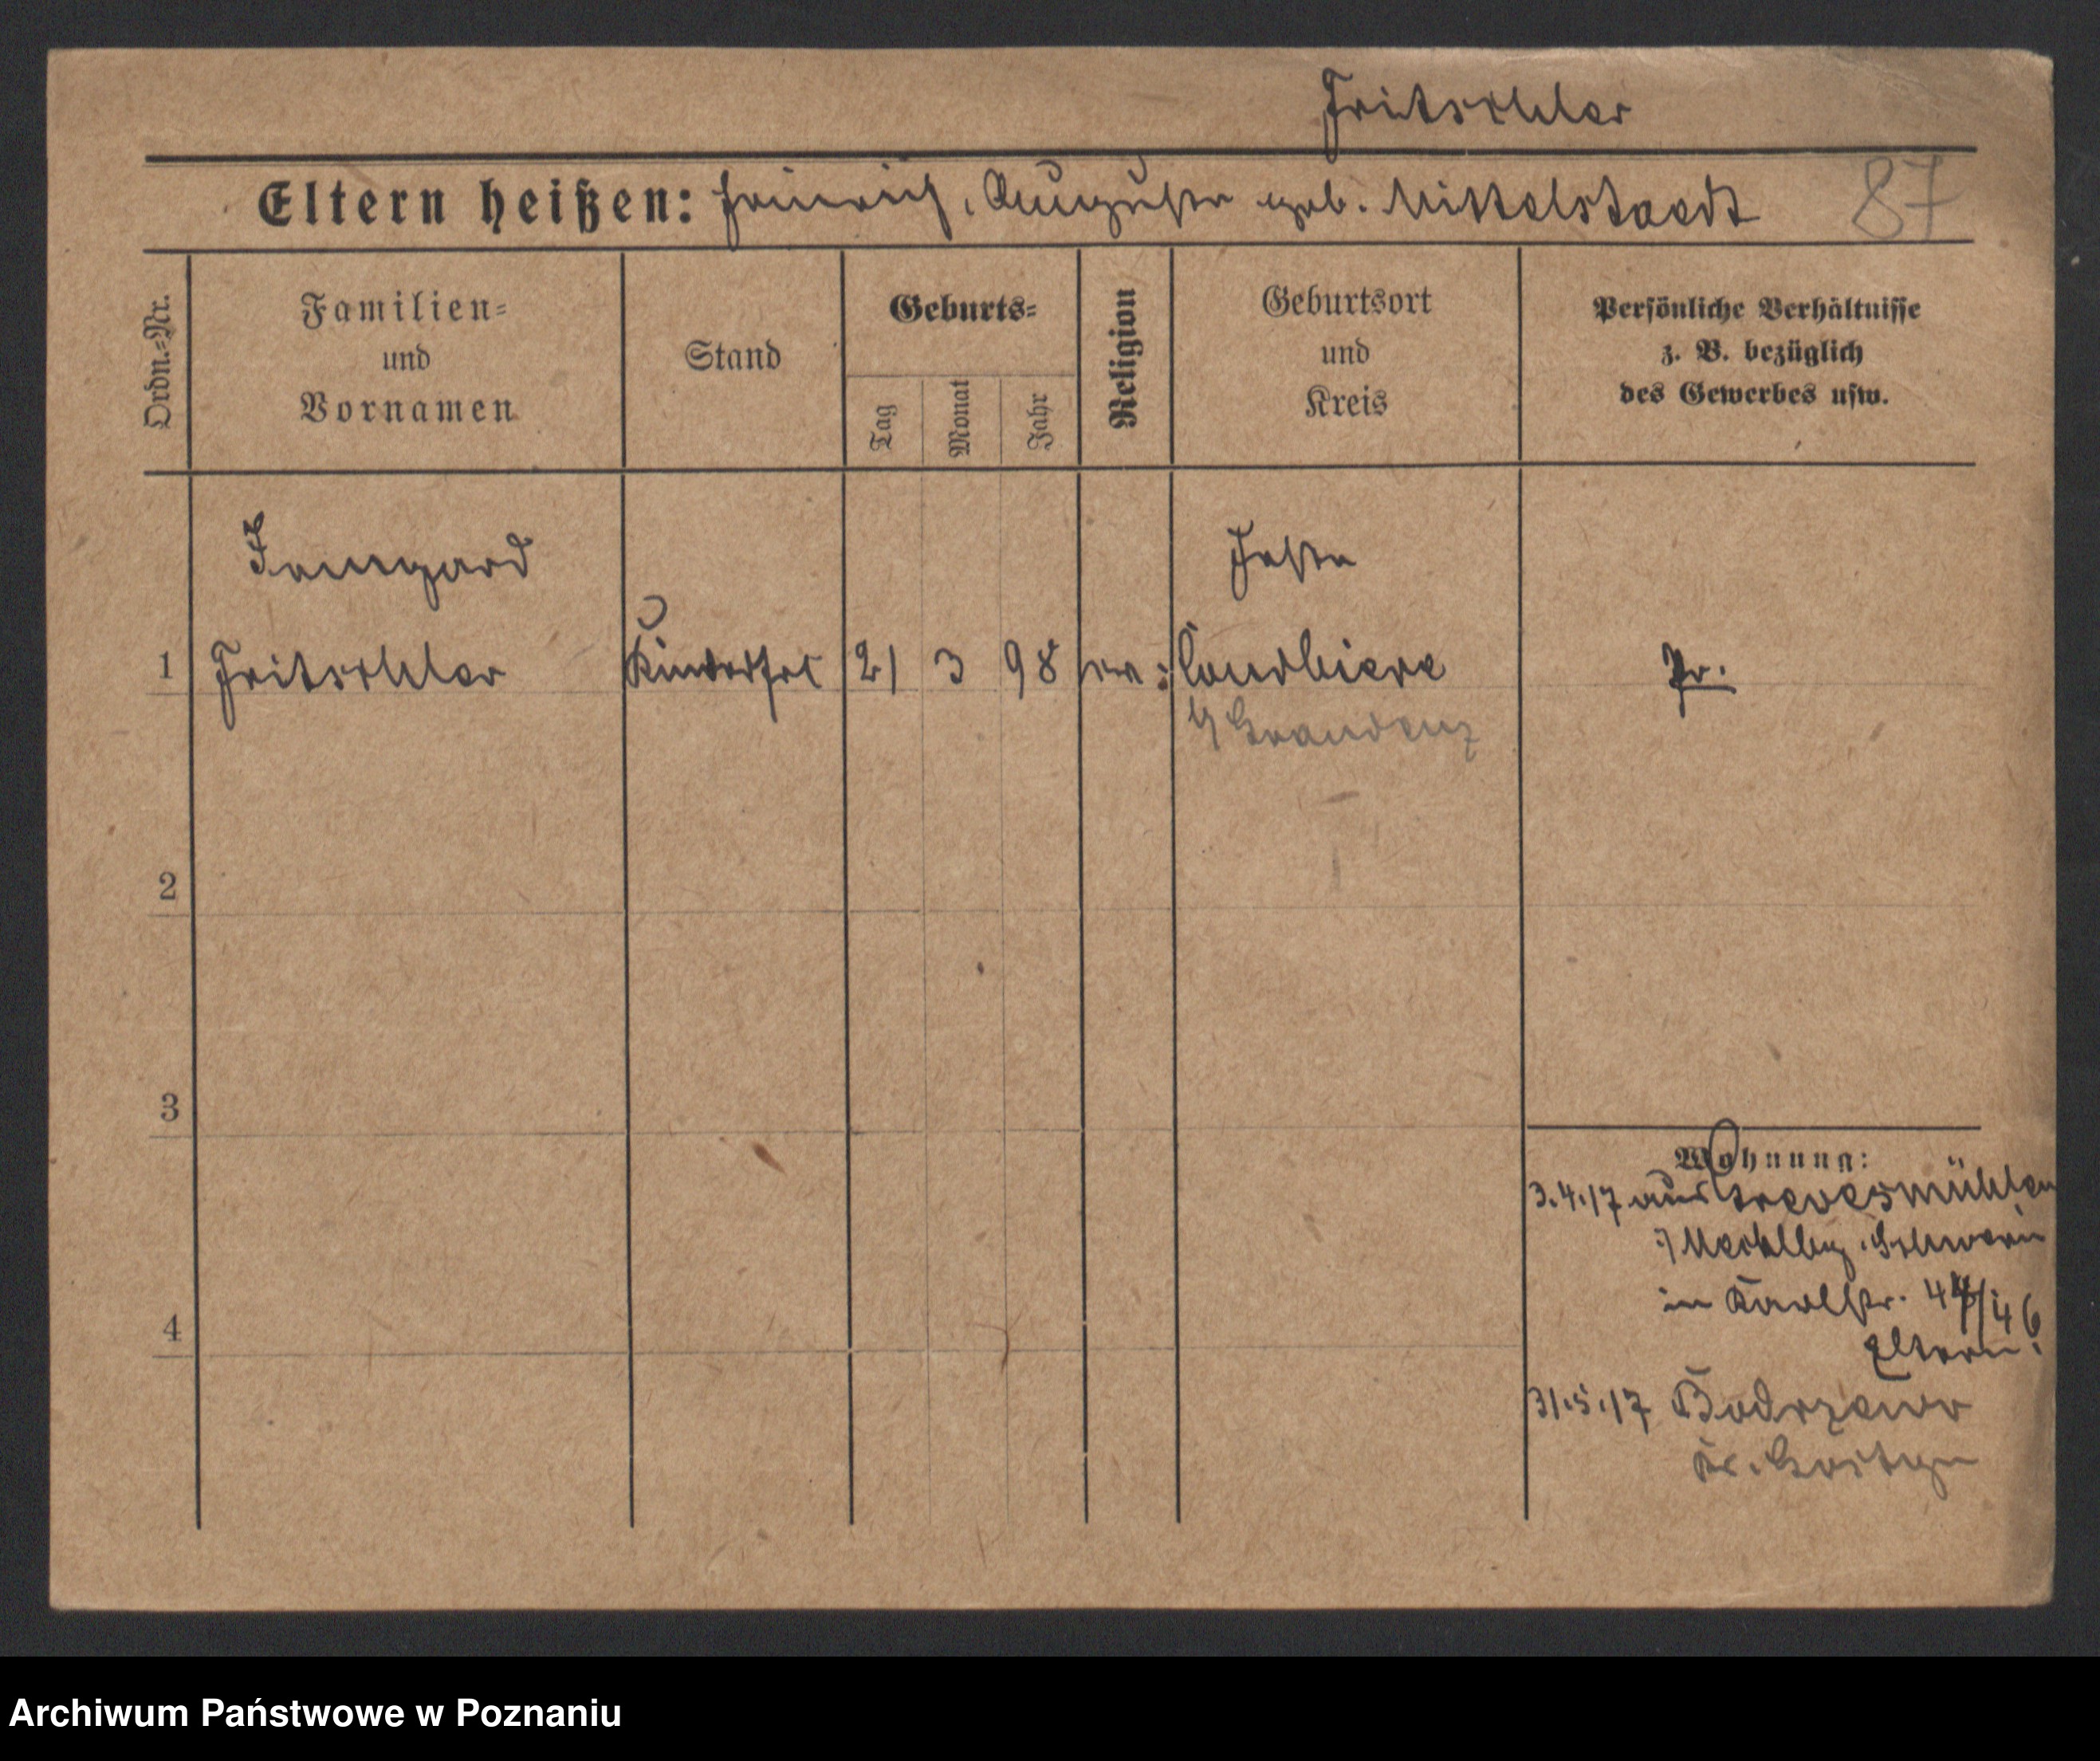 Fritschler
Eltern heißen: Heinrich, Auguste geb. Mittelstaedt 87
Ordn.-Nr.
Familien-
und
Vornamen
Stand
Geburts-
Tag
Monat
Jahr
Religion
Geburtsort
und
Kreis
Persönliche Verhältnisse
z. B. bezüglich
des Gewerbes usw.
Irmgard
Feste
1 Fritschler Kinderfrl 21 3 98 ev: Courbiere Pr.
b/ Graudenz
2
3
Wohnung:
3.4.17 aus Grevesmühlen
i/ Mecklbg. Schwerin
in Karlstr. 44/46
4
Eltern.
31.5.17 Bodrzewo
Kr. Gostyn
Archiwum Państwowe w Poznaniu